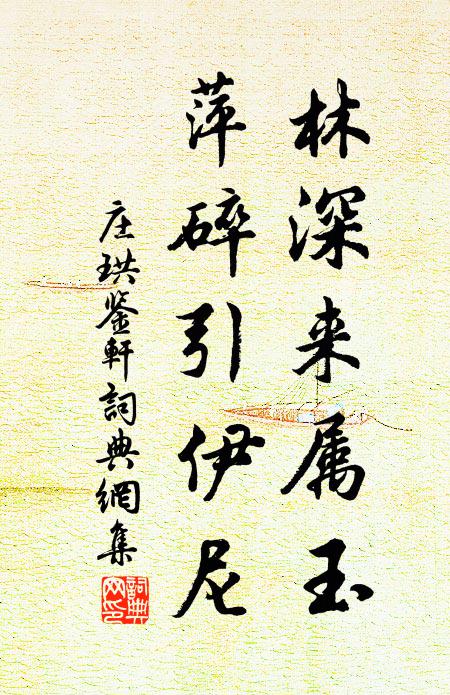 林深来属玉
萍碎引伊尼
庄珙鉴軒詞典網集
詞典网印